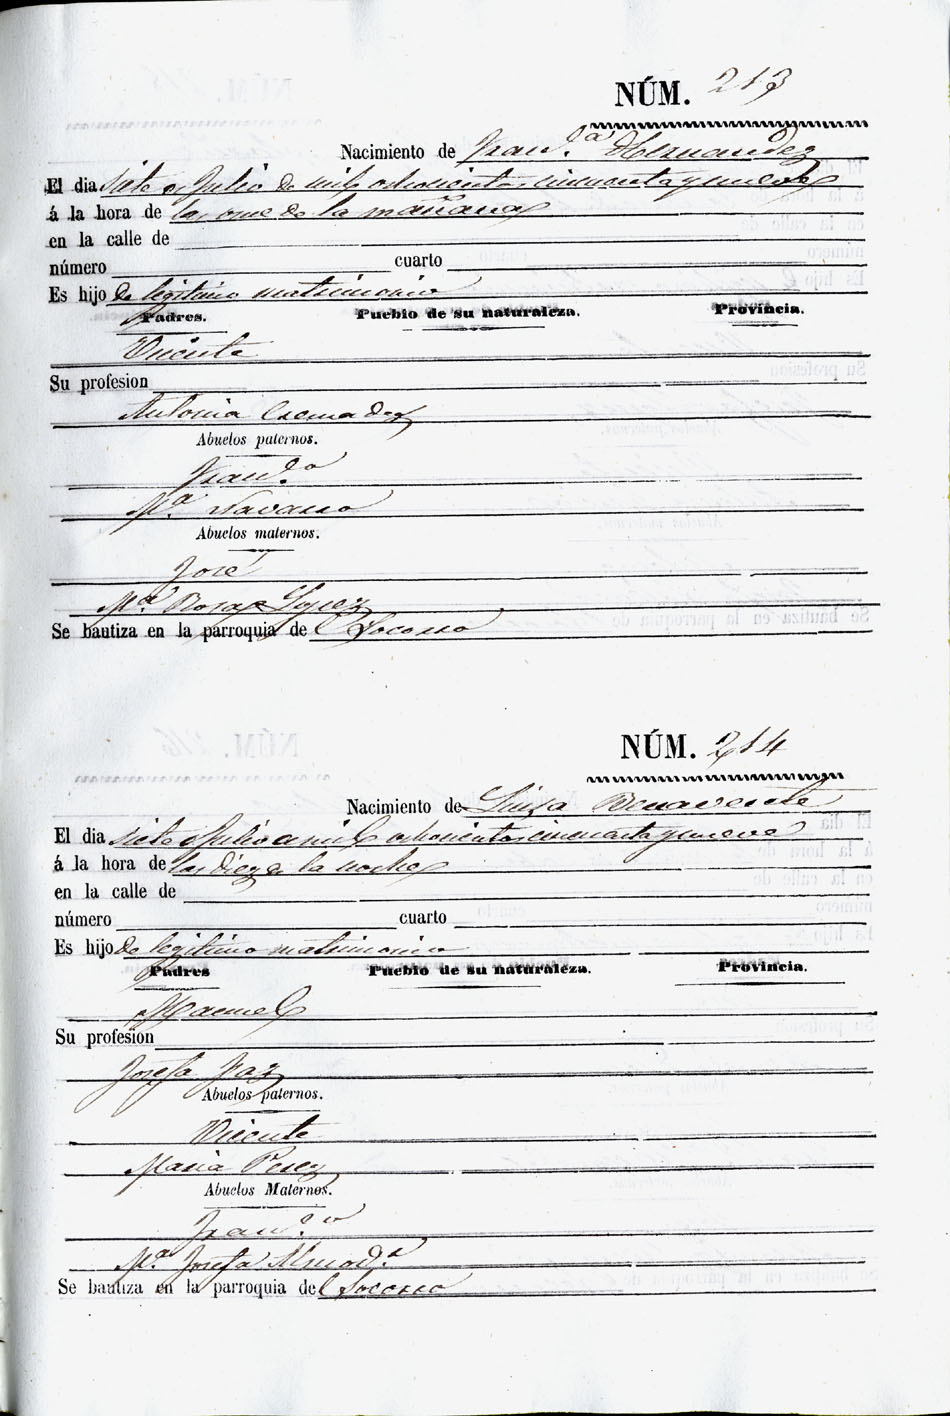 NÚM. 213
Nacimiento de Fran.ca Hernandez
El dia siete de Julio de mil ochocientos cincuenta y nueve
á la hora de las once de la mañana
en la calle de
número cuarto
Es hijo de legitimo matrimonio
Padres. Pueblo de su naturaleza. Provincia.
Vicente
Su profesion
Antonia
Abuelos paternos.
Fran.co
M.a Navarro
Abuelos maternos.
José
M.a Rosa Lopez
Se bautiza en la parroquia del Socorro
NÚM. 214
Nacimiento de Luisa Benavente
El dia siete de Julio de mil ochocientos cincuenta y nueve
á la hora de las diez de la noche
en la calle de
número cuarto
Es hijo de legitimo matrimonio
Padres Pueblo de su naturaleza. Provincia.
Manuel
Su profesion
Josefa Paz
Abuelos paternos.
Vicente
Maria Perez
Abuelos Maternos.
Fran.co
M.a Josefa
Se bautiza en la parroquia del Socorro